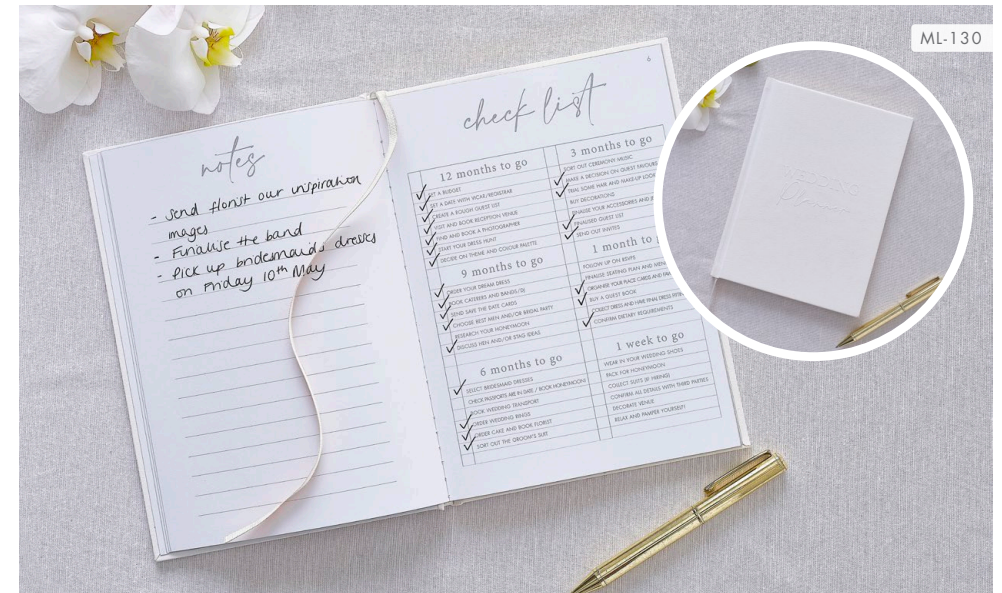 ML-130
notes
- send florist our inspiration
images
- Finalise the band
- Pick up bridesmaids dresses
on Friday 10th May
6
check list
12 months to go
SET A BUDGET
SET A DATE WITH VICAR/REGISTRAR
CREATE A ROUGH GUEST LIST
VISIT AND BOOK RECEPTION VENUE
FIND AND BOOK A PHOTOGRAPHER
START YOUR DRESS HUNT
DECIDE ON THEME AND COLOUR PALETTE
9 months to go
ORDER YOUR DREAM DRESS
BOOK CATERERS AND BANDS/DJ
SEND SAVE THE DATE CARDS
CHOOSE BEST MEN AND/OR BRIDAL PARTY
RESEARCH YOUR HONEYMOON
DISCUSS HEN AND/OR STAG IDEAS
6 months to go
SELECT BRIDESMAID DRESSES
CHECK PASSPORTS ARE IN DATE / BOOK HONEYMOON
BOOK WEDDING TRANSPORT
ORDER WEDDING RINGS
ORDER CAKE AND BOOK FLORIST
SORT OUT THE GROOM'S SUIT
3 months to go
SORT OUT CEREMONY MUSIC
MAKE A DECISION ON GUEST FAVOURS
TRIAL SOME HAIR AND MAKE-UP
BUY DECORATIONS
FINALISE YOUR ACCESSORIES AND
FINALISED GUEST LIST
SEND OUT INVITES
1 month to
FOLLOW UP ON RSVPS
FINALISE SEATING PLAN AND
ORGANISE YOUR PLACE CARDS AND
BUY A GUEST BOOK
COLLECT DRESS AND HAVE FINAL DRESS
CONFIRM DIETARY REQUIREMENTS
1 week to go
WEAR IN YOUR WEDDING SHOES
PACK FOR HONEYMOON
COLLECT SUITS (IF HIRING)
CONFIRM ALL DETAILS WITH THIRD PARTIES
DECORATE VENUE
RELAX AND PAMPER YOURSELF!